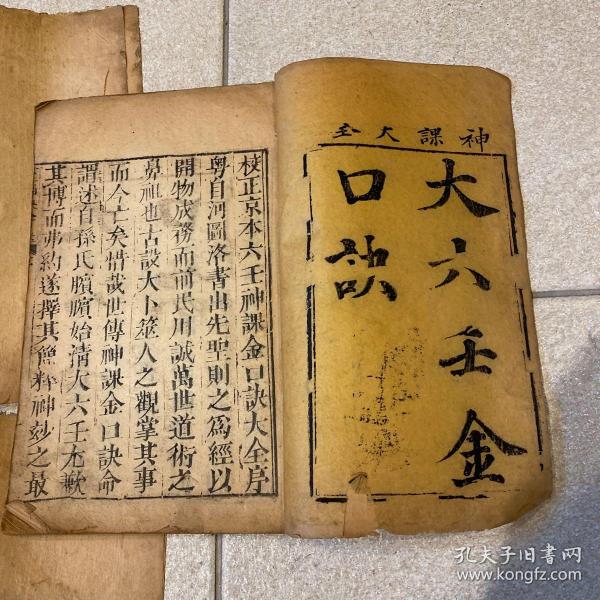 神課大全
大六壬金
口訣
校正京本六壬神課金口訣大全序
粤自河圖洛書出先聖則之為經以
開物成務而前民用誠萬世道術之
鼻祖也古設大卜筮人之觀掌其事
而今亡矣惜哉世傳神課金口訣命
謂述自孫氏臏臏始清大六壬尤歉
其博而弗約遂擇其簡粹神妙之最
孔夫子旧书网
www.kongfz.com